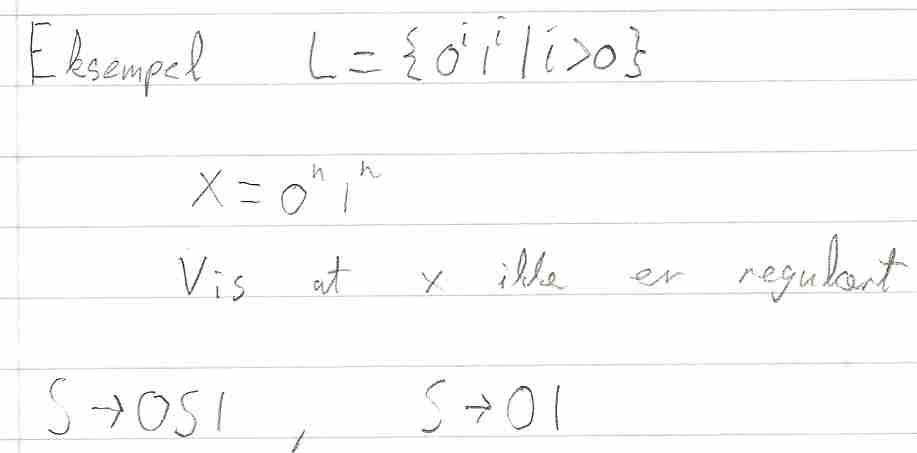 Eksempel L = {0ⁱ1ⁱ | i>0}
x = 0ⁿ1ⁿ
Vis at x ikke er regulært
S → 0S1, S → 01